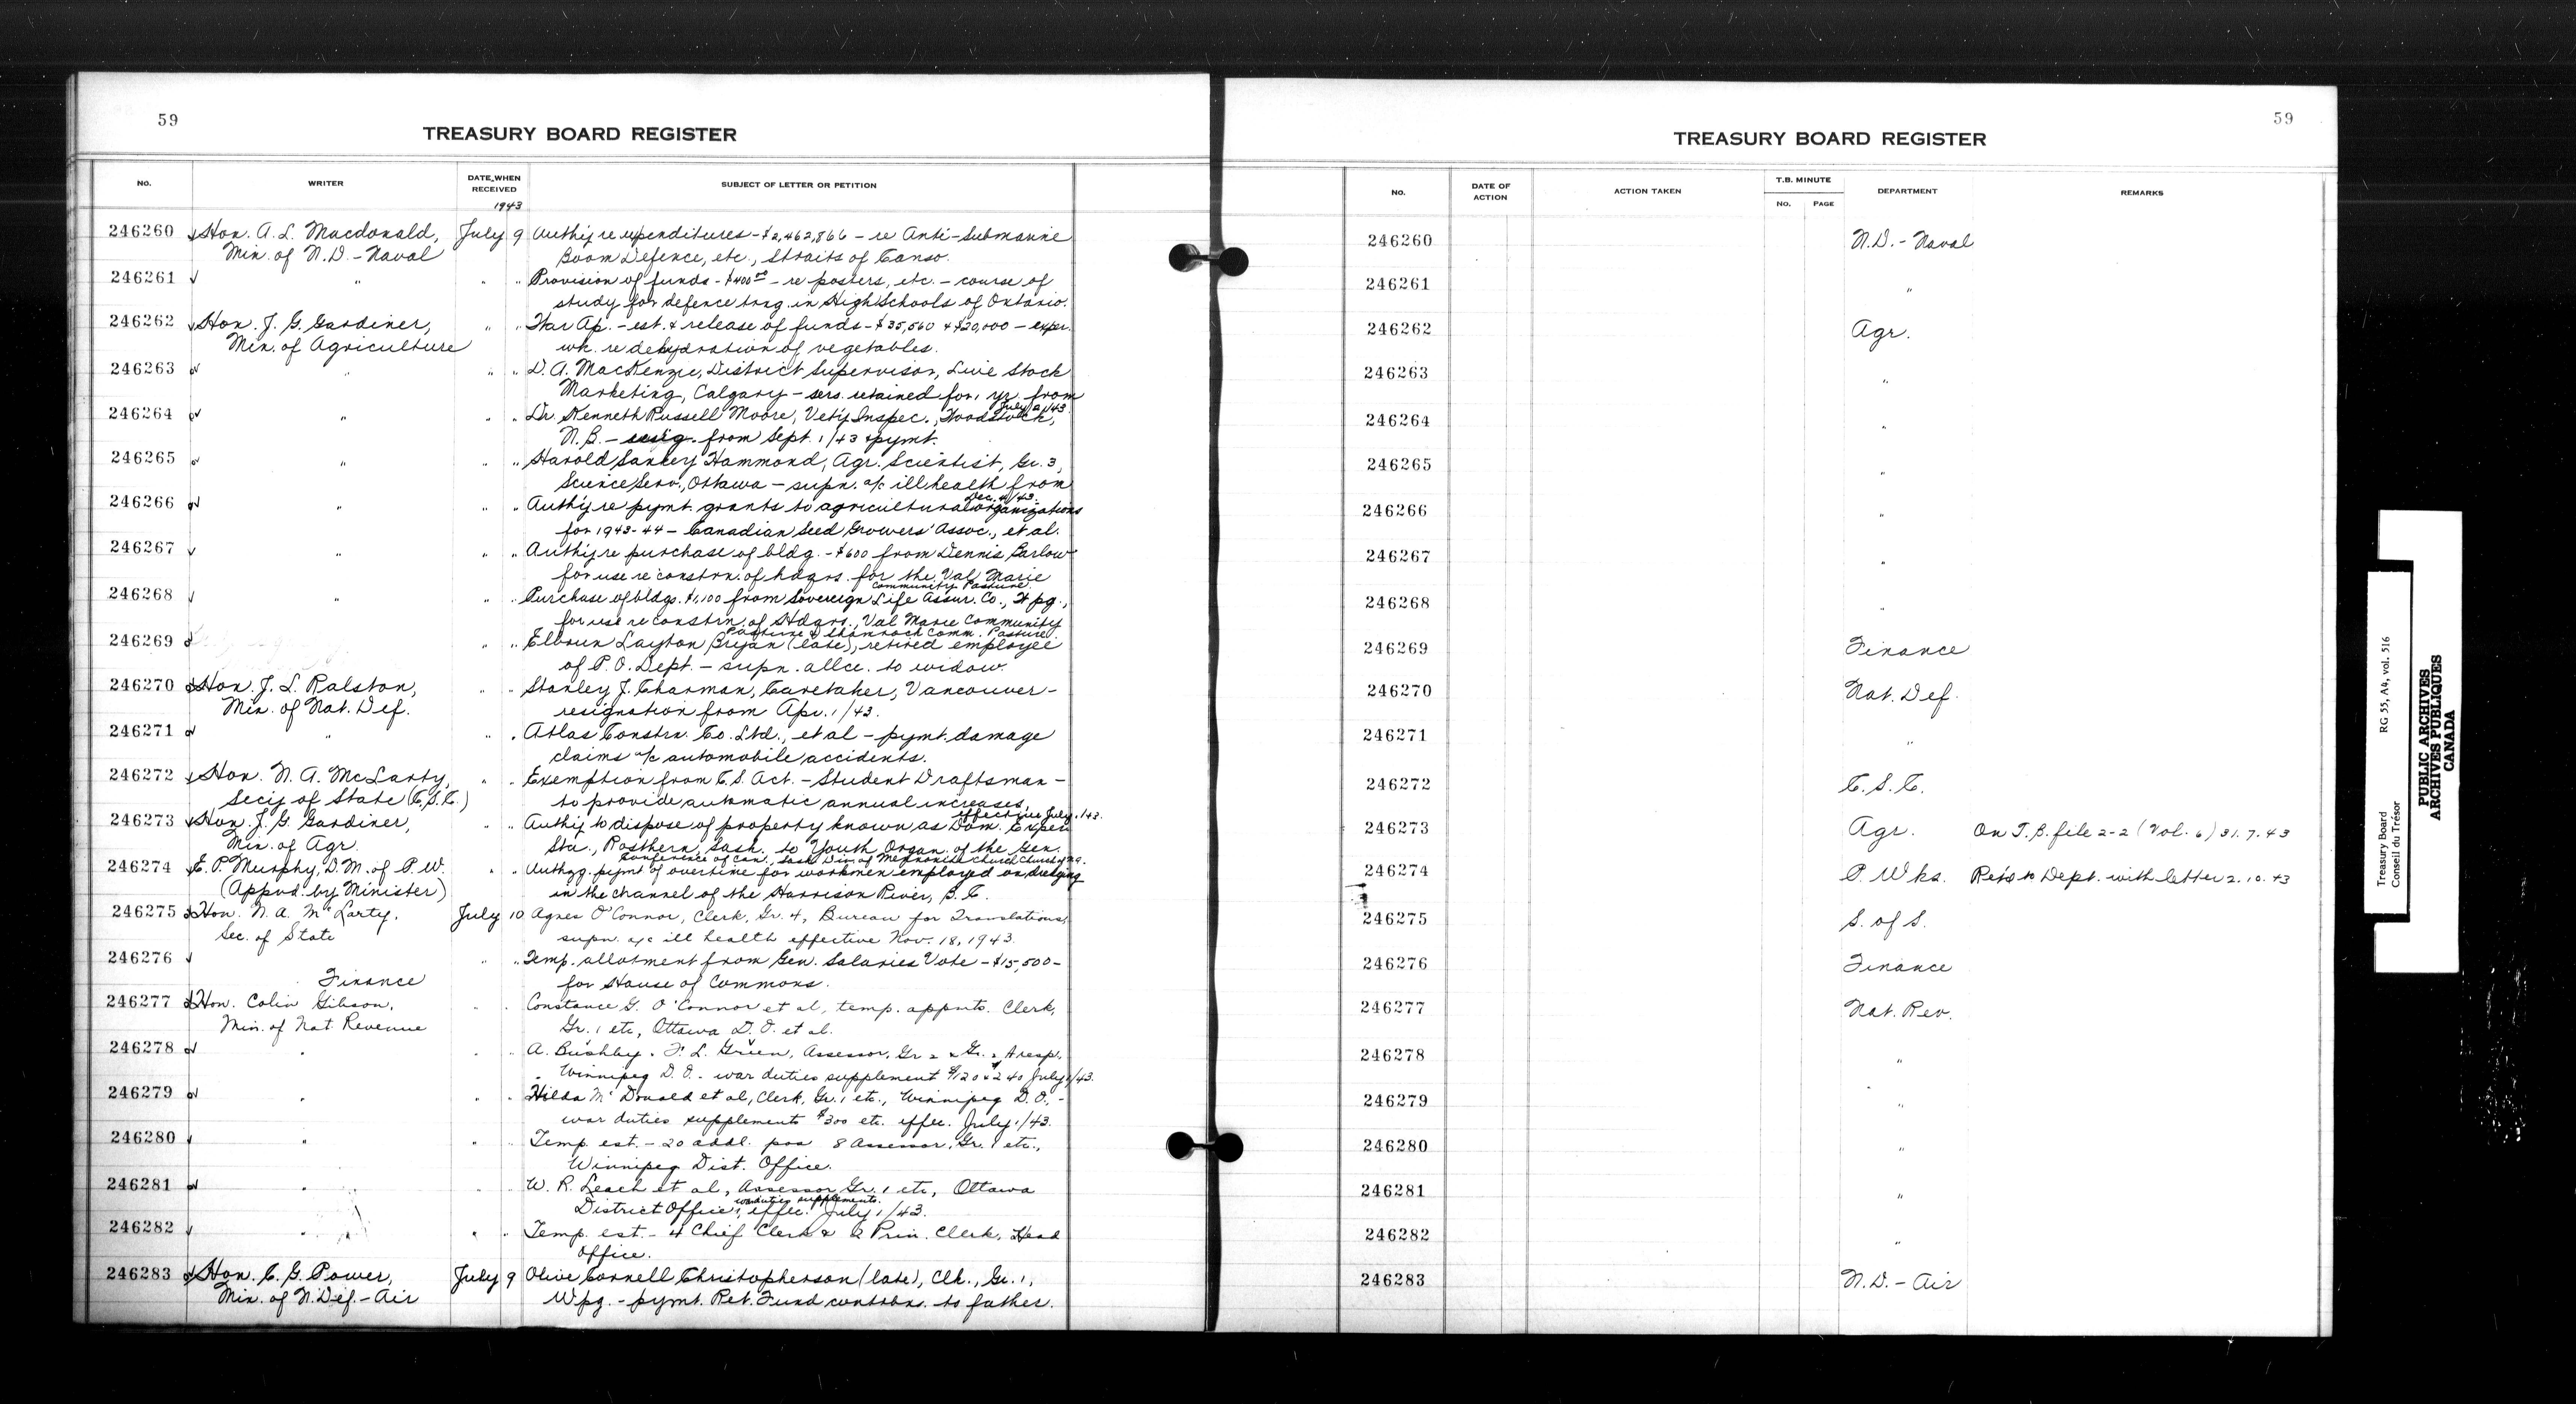 59
TREASURY BOARD REGISTER
NO.
WRITER
DATE WHEN RECEIVED
SUBJECT OF LETTER OR PETITION
1943
246260 Hon. A. L. Macdonald, July 9 Auth'y re expenditures - $2,462,866 - re Anti-Submarine
Min. of N.D. - Naval Boom Defence, etc., Straits of Canso.
246261 " " " Provision of funds - $400.00 - re posters, etc. - course of
study for defence trng. in High Schools of Ontario.
246262 Hon. J. G. Gardiner, " " War Ap. - est. & release of funds - $35,560 & $20,000 - exper.
Min. of Agriculture wk. re dehydration of vegetables.
246263 " " " D. A. MacKenzie, District Supervisor, Live Stock
Marketing, Calgary - sers. retained for 1 yr. from
July 2/43.
246264 " " " Dr. Kenneth Russell Moore, Vet'y Inspec., Woodstock,
N.B. - resig. from Sept. 1/43 & pymt.
246265 " " " Harold Sankey Hammond, Agr. Scientist, Gr. 3,
Science Serv., Ottawa - supn. a/c ill health from
Dec. 4/43.
246266 " " " Auth'y re pymt. grants to agricultural organizations
for 1943-44 - Canadian Seed Growers' Assoc., et al.
246267 " " " Auth'y re purchase of bldg. - $600 from Dennis Barlow
for use re constrn. of hdqrs. for the Val Marie
Community Pasture.
246268 " " " Purchase of bldgs. $1,100 from Sovereign Life Assur. Co., Wpg.,
for use re constrn. of Hdqrs., Val Marie Community
Pasture & Shamrock Comm. Pasture.
246269 " " Elbourn Layton Bryan (late), retired employee
of P.O. Dept. - supn. allce. to widow.
246270 Hon. J. L. Ralston, " " Stanley J. Charman, Caretaker, Vancouver -
Min. of Nat. Def. resignation from Apr. 1/43.
246271 " " " Atlas Constrn. Co. Ltd., et al - pymt. damage
claims a/c automobile accidents.
246272 Hon. N. A. McLarty, " " Exemption from C.S. Act. - Student Draftsman -
Sec'y of State (C.S.C.) to provide automatic annual increases,
effective July 1/43.
246273 Hon. J. G. Gardiner, " " Auth'y to dispose of property known as Dom. Exper.
Min. of Agr. Sta., Rosthern, Sask. to Youth Organ. of the Gen.
Conference of Can., Sask. Div. of Mennonite Church
246274 E. P. Murphy, D.M. of P.W. " " Authzg. pymt. of overtime for workmen employed on dredging
(Appvd. by Minister) in the channel of the Harrison River, B.C.
246275 Hon. N. A. McLarty, July 10 Agnes O'Connor, Clerk, Gr. 4, Bureau for Translations,
Sec. of State supn. a/c ill health effective Nov. 18, 1943.
246276 " " Temp. allotment from Gen. Salaries Vote - $15,500 -
Finance for House of Commons.
246277 Hon. Colin Gibson, " " Constance G. O'Connor et al, temp. appnts. Clerk,
Min. of Nat. Revenue Gr. 1 etc, Ottawa D.O. et al.
246278 " " " A. Bushby, F. L. Green, Assessor, Gr 2 & Gr. 4 resp.
Winnipeg D.O. - war duties supplement $120 & $240 July 1/43.
246279 " " " Hilda McDonald et al, Clerk, Gr. 1 etc., Winnipeg D.O. -
war duties supplements $300 etc. effec. July 1/43.
246280 " " " Temp. est. - 20 addl. pos 8 Assessor, Gr. 1 etc.,
Winnipeg Dist. Office.
246281 " " " W. R. Leach et al, Assessor Gr. 1 etc, Ottawa
war duties supplements.
District Office, effec. July 1/43.
246282 " " " Temp. est. - 4 Chief Clerk & 2 Prin. Clerk, Head
Office.
246283 Hon. C. G. Power, July 9 Olive Cornell Christopherson (late), Clk., Gr. 1,
Min. of N. Def. - Air Wpg. - pymt. Ret. Fund contrbns. to father.
59
TREASURY BOARD REGISTER
NO.
DATE OF ACTION
ACTION TAKEN
T.B. MINUTE
NO. PAGE
DEPARTMENT
REMARKS
246260 N.D. - Naval
246261 "
246262 Agr.
246263 "
246264 "
246265 "
246266 "
246267 "
246268 "
246269 Finance
246270 Nat. Def.
246271 "
246272 C.S.C.
246273 Agr. On T.B. file 2-2 (Vol. 6) 31.7.43
246274 P. Wks. Ret'd to Dept. with letter 2.10.43
246275 S. of S.
246276 Finance
246277 Nat. Rev.
246278 "
246279 "
246280 "
246281 "
246282 "
246283 N.D. - Air
Treasury Board
Conseil du Trésor
RG 55, A4, vol. 516
PUBLIC ARCHIVES
ARCHIVES PUBLIQUES
CANADA